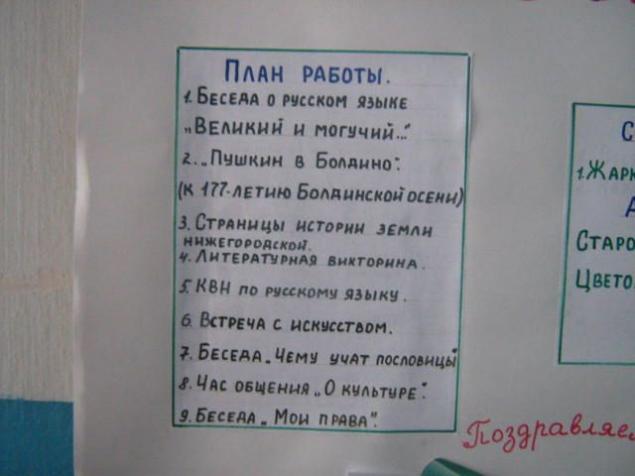 План работы.
1. Беседа о русском языке
„Великий и могучий..."
2. „Пушкин в Болдино".
(к 177-летию Болдинской осени)
3. Страницы истории земли
нижегородской.
4. Литературная викторина.
5. КВН по русскому языку.
6. Встреча с искусством.
7. Беседа „Чему учат пословицы"
8. Час общения „О культуре".
9. Беседа „Мои права".